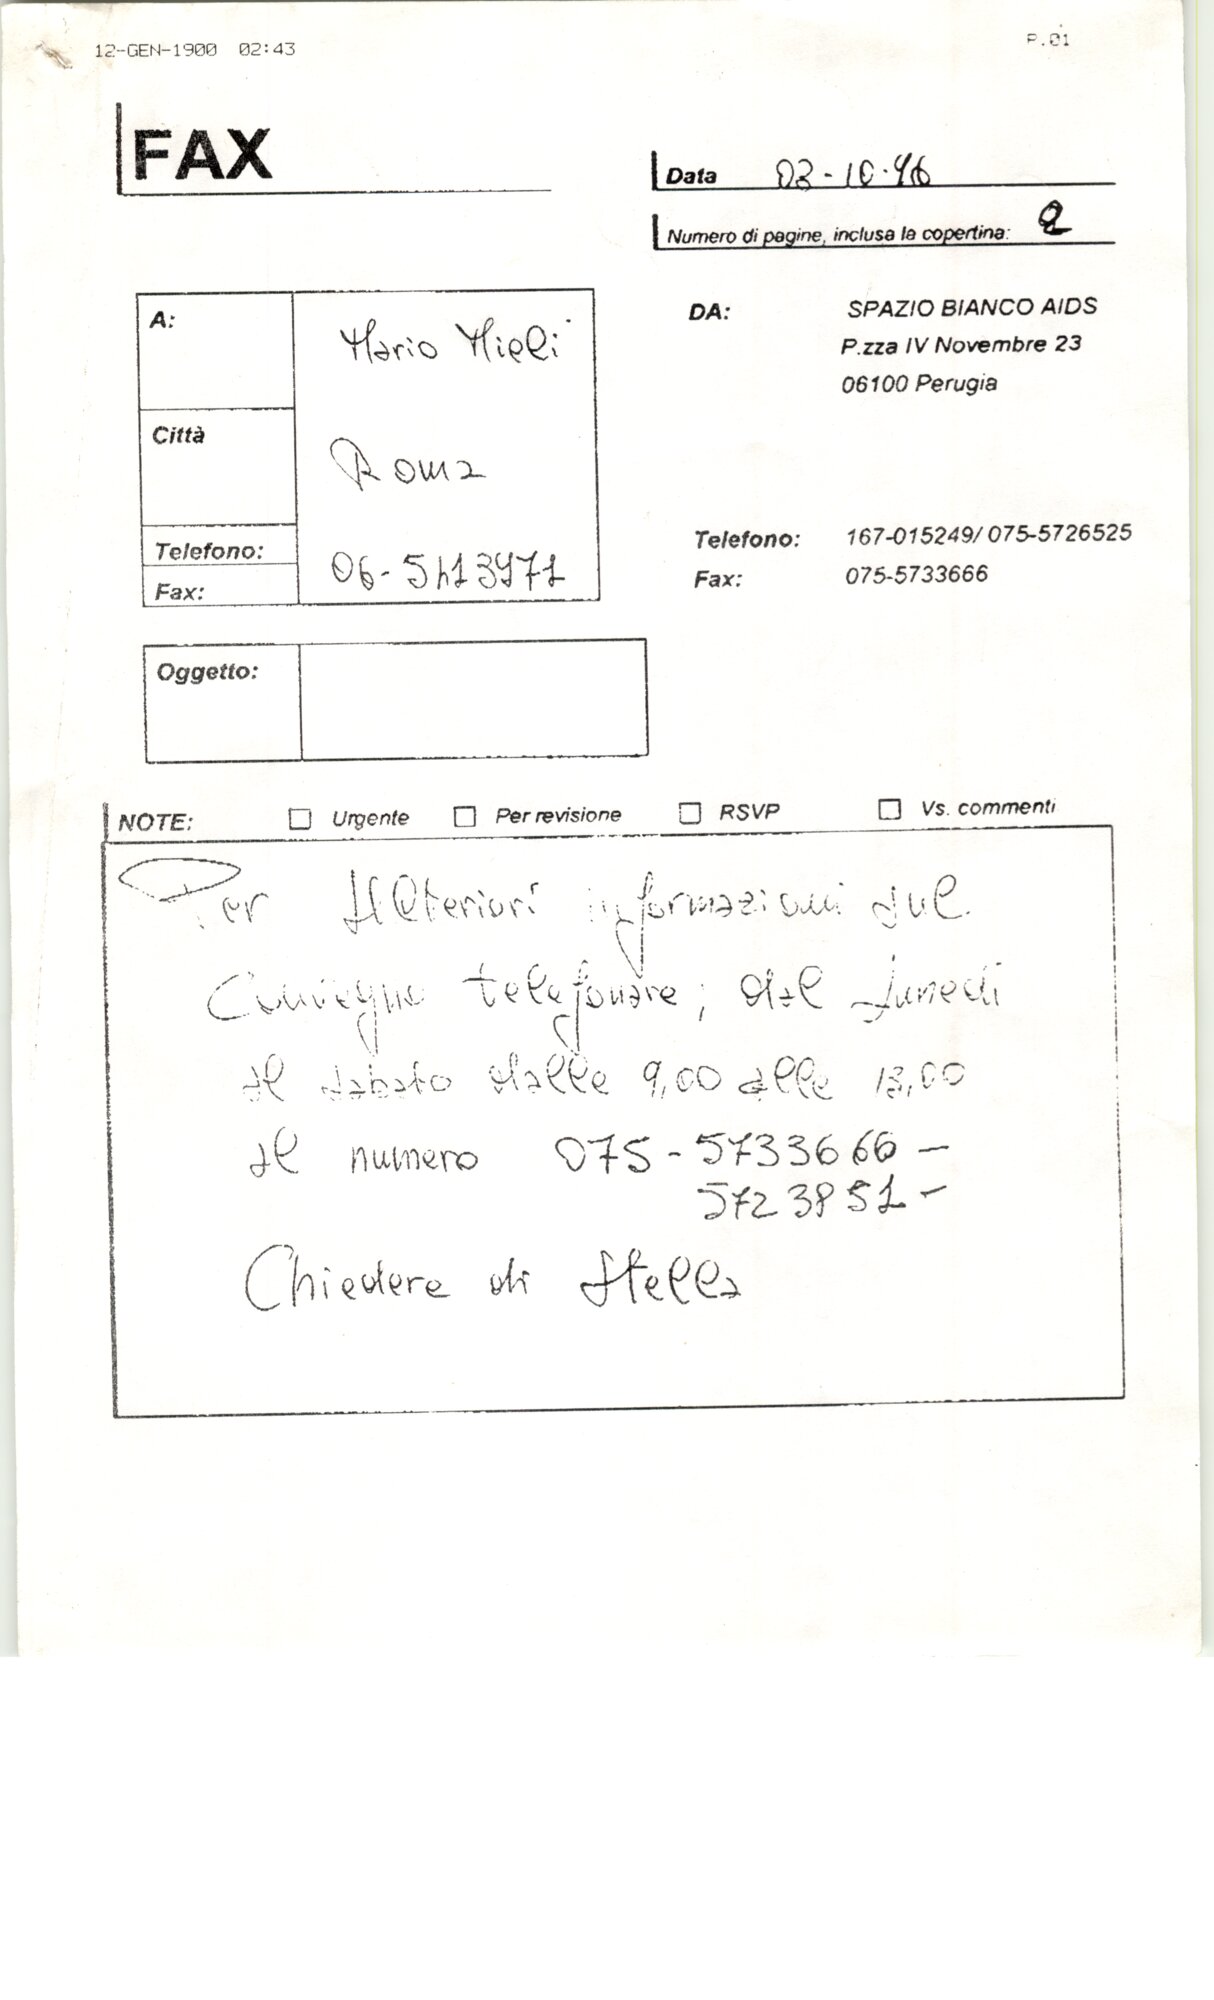 12-GEN-1900 02:43
P.01
FAX
Data 03-10-96
Numero di pagine, inclusa la copertina: 2
A: Mario Mieli
Città Roma
Telefono:
Fax: 06-5413971
DA: SPAZIO BIANCO AIDS
P.zza IV Novembre 23
06100 Perugia
Telefono: 167-015249/ 075-5726525
Fax: 075-5733666
Oggetto:
NOTE: Urgente Per revisione RSVP Vs. commenti
Per Ulteriori informazioni sul
Convegno telefonare; dal Lunedì
al sabato dalle 9,00 alle 13,00
al numero 075-5733666 –
5723851 –
Chiedere di Stella